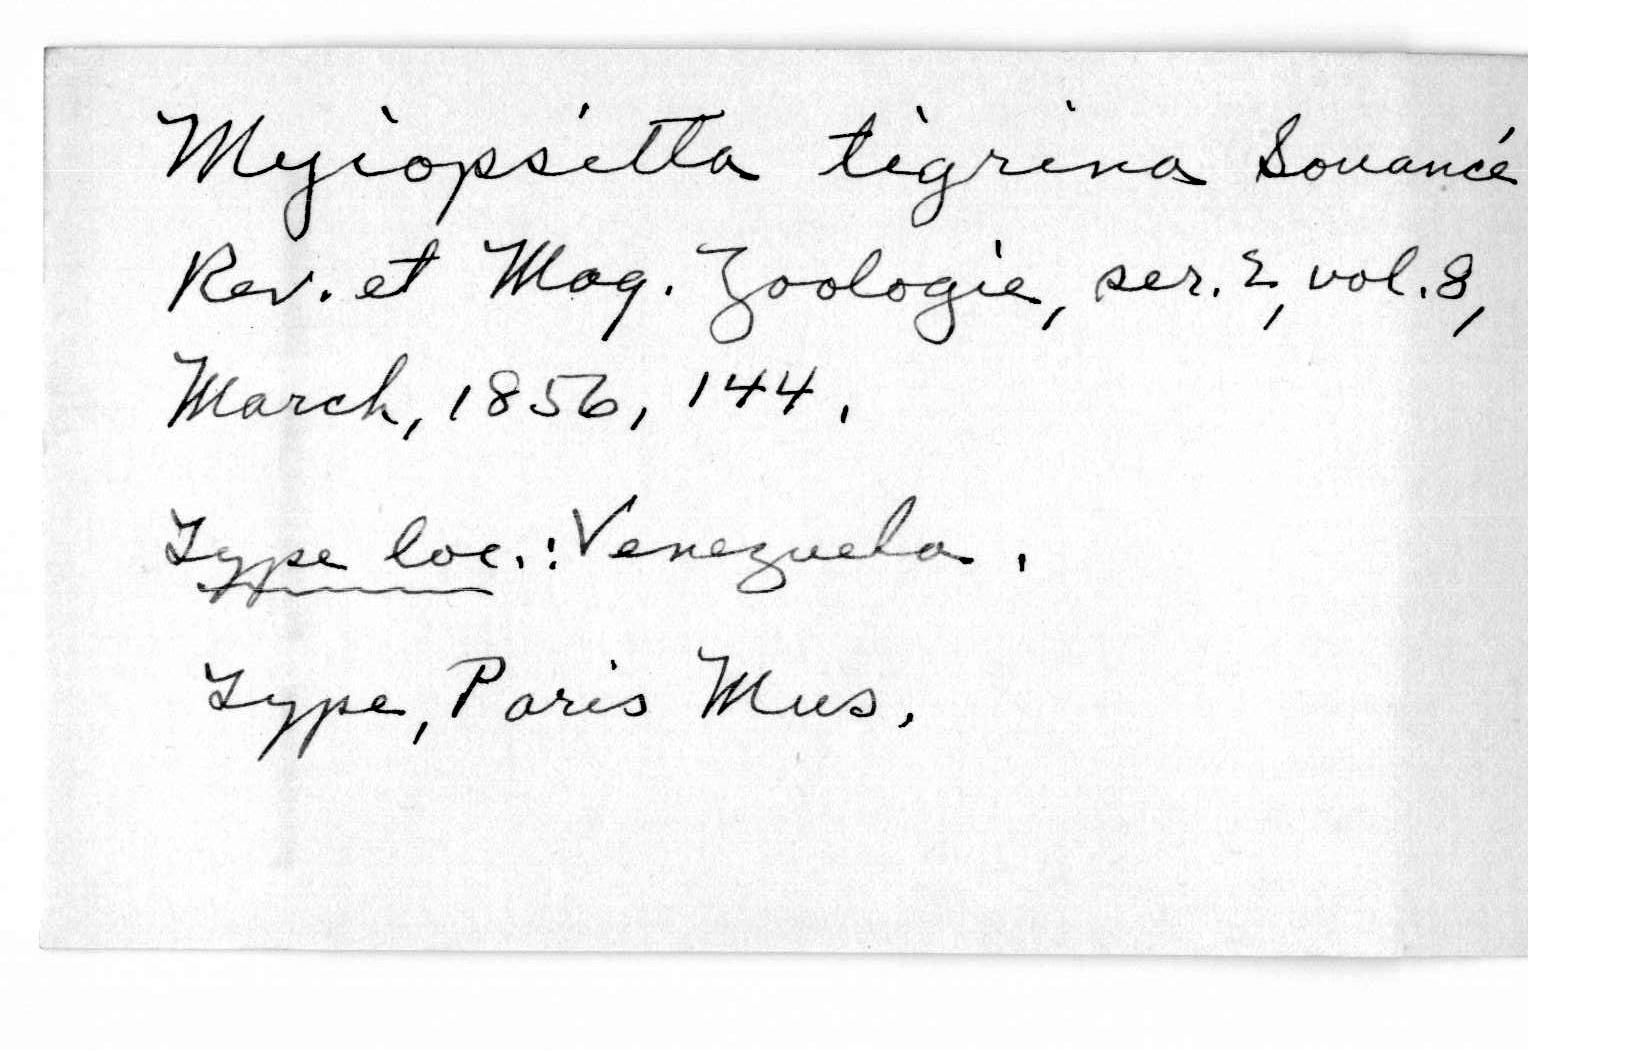 Myiopsitta tigrina Souancé
Rev. et Mag. Zoologie, ser. 2, vol. 8,
March, 1856, 144.
Type loc.: Venezuela.
Type, Paris Mus.